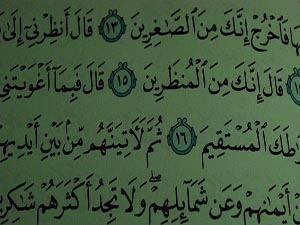 فَٱخۡرُجۡ إِنَّكَ مِنَ ٱلصَّٰغِرِينَ ١٣ قَالَ أَنظِرۡنِيٓ إِلَىٰ
قَالَ إِنَّكَ مِنَ ٱلۡمُنظَرِينَ ١٥ قَالَ فَبِمَآ أَغۡوَيۡتَنِي
ٱلۡمُسۡتَقِيمَ ١٦ ثُمَّ لَأٓتِيَنَّهُم مِّنۢ بَيۡنِ
أَيۡمَٰنِهِمۡ وَعَن شَمَآئِلِهِمۡۖ وَلَا تَجِدُ أَكۡثَرَهُمۡ